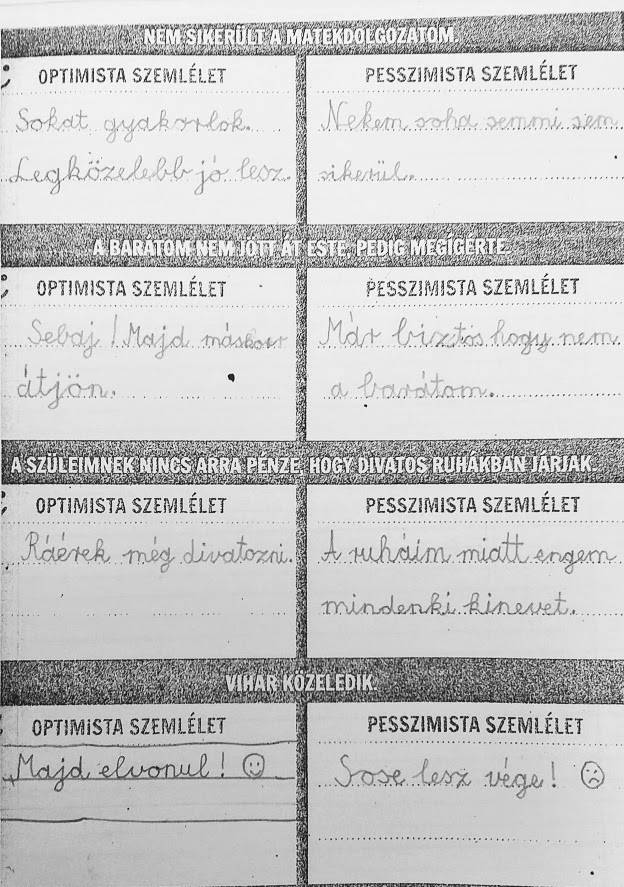 NEM SIKERÜLT A MATEKDOLGOZATOM.
OPTIMISTA SZEMLÉLET
Sokat gyakorlok.
Legközelebb jó lesz.
PESSZIMISTA SZEMLÉLET
Nekem soha semmi sem
sikerül.
A BARÁTOM NEM JÖTT ÁT ESTE, PEDIG MEGÍGÉRTE.
OPTIMISTA SZEMLÉLET
Sebaj! Majd máskor
átjön.
PESSZIMISTA SZEMLÉLET
Már biztos hogy nem
a barátom.
A SZÜLEIMNEK NINCS ARRA PÉNZE, HOGY DIVATOS RUHÁKBAN JÁRJAK.
OPTIMISTA SZEMLÉLET
Ráérek még divatozni.
PESSZIMISTA SZEMLÉLET
A ruháim miatt engem
mindenki kinevet.
VIHAR KÖZELEDIK.
OPTIMISTA SZEMLÉLET
Majd elvonul!
PESSZIMISTA SZEMLÉLET
Sose lesz vége!